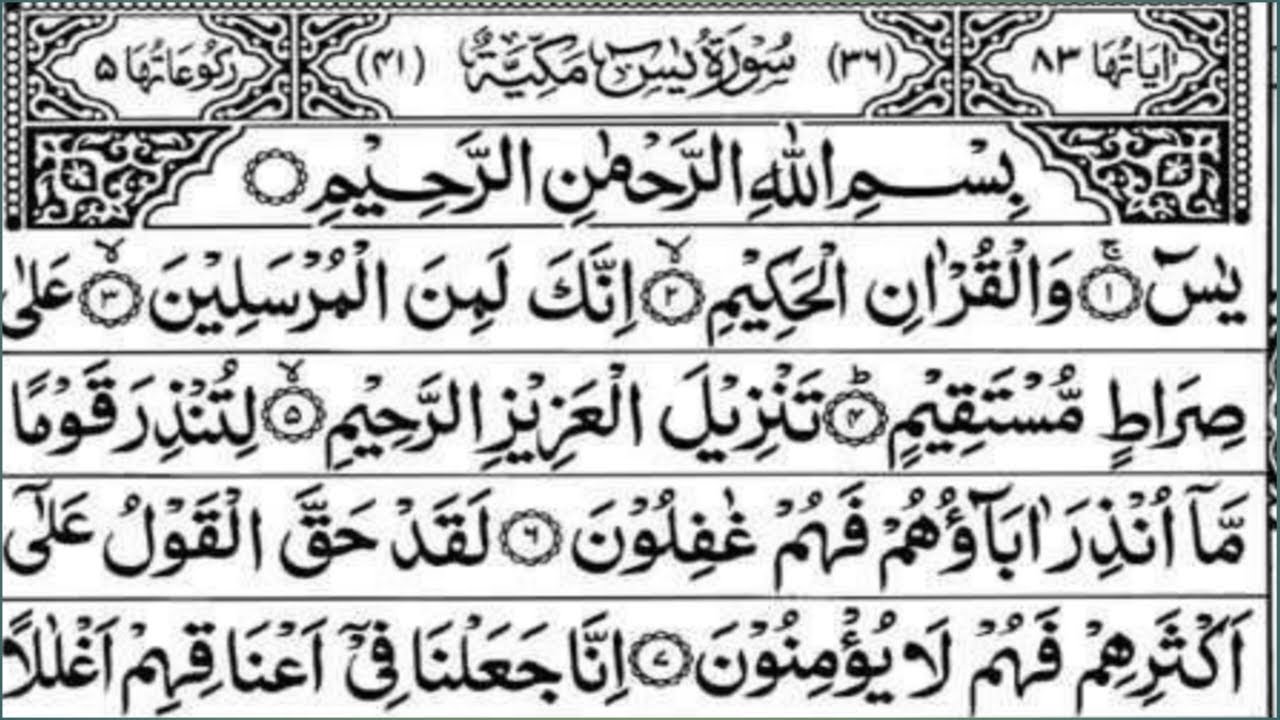 اٰيَاتُهَا ٨٣ (٣٦) سُوْرَةُ يٰسٓ مَكِّيَّةٌ (٤١) رُكُوْعَاتُهَا ٥
بِسْمِ اللّٰهِ الرَّحْمٰنِ الرَّحِيْمِ
يٰسٓ ۚ﴿۱﴾ وَالْقُرْاٰنِ الْحَكِيْمِ ۙ﴿۲﴾ اِنَّكَ لَمِنَ الْمُرْسَلِيْنَ ۙ﴿۳﴾ عَلٰى
صِرَاطٍ مُّسْتَقِيْمٍ ؕ﴿۴﴾ تَنْزِيْلَ الْعَزِيْزِ الرَّحِيْمِ ۙ﴿۵﴾ لِتُنْذِرَ قَوْمًا
مَّاۤ اُنْذِرَ اٰبَآؤُهُمْ فَهُمْ غٰفِلُوْنَ ﴿۶﴾ لَقَدْ حَقَّ الْقَوْلُ عَلٰٓى
اَكْثَرِهِمْ فَهُمْ لَا يُؤْمِنُوْنَ ﴿۷﴾ اِنَّا جَعَلْنَا فِيْۤ اَعْنَاقِهِمْ اَغْلٰلًا